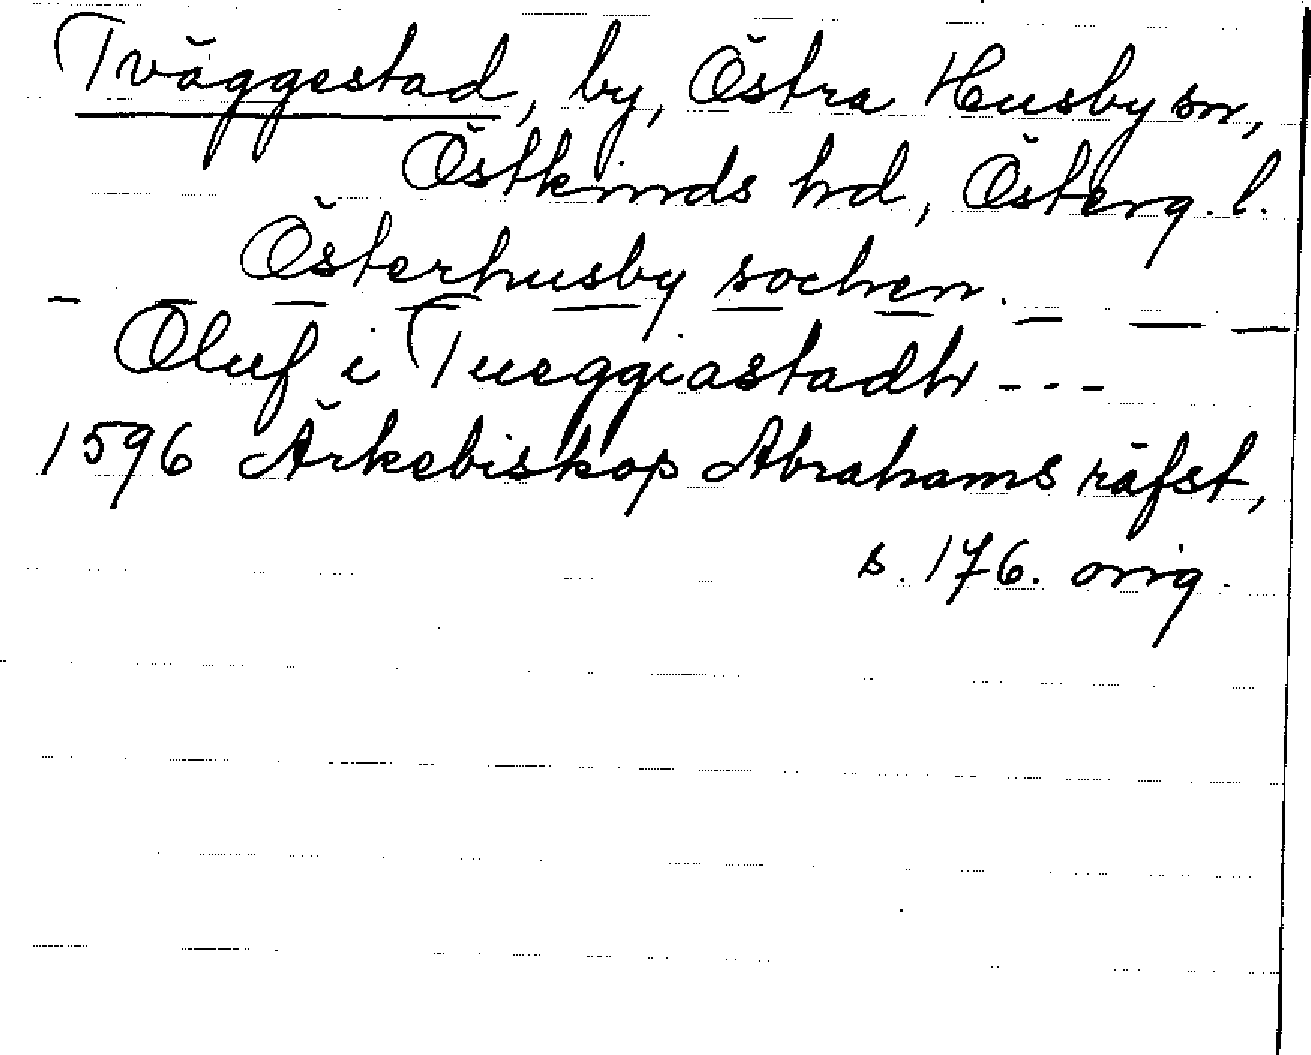 Tväggestad, by, Östra Husby sn,
Östkinds hd, Österg. l.
Österhusby sochen.
– – – – – – – – – –
Oluf i Tueggiastadh - - -
1596 Ärkebiskop Abrahams räfst,
s. 176. orig.